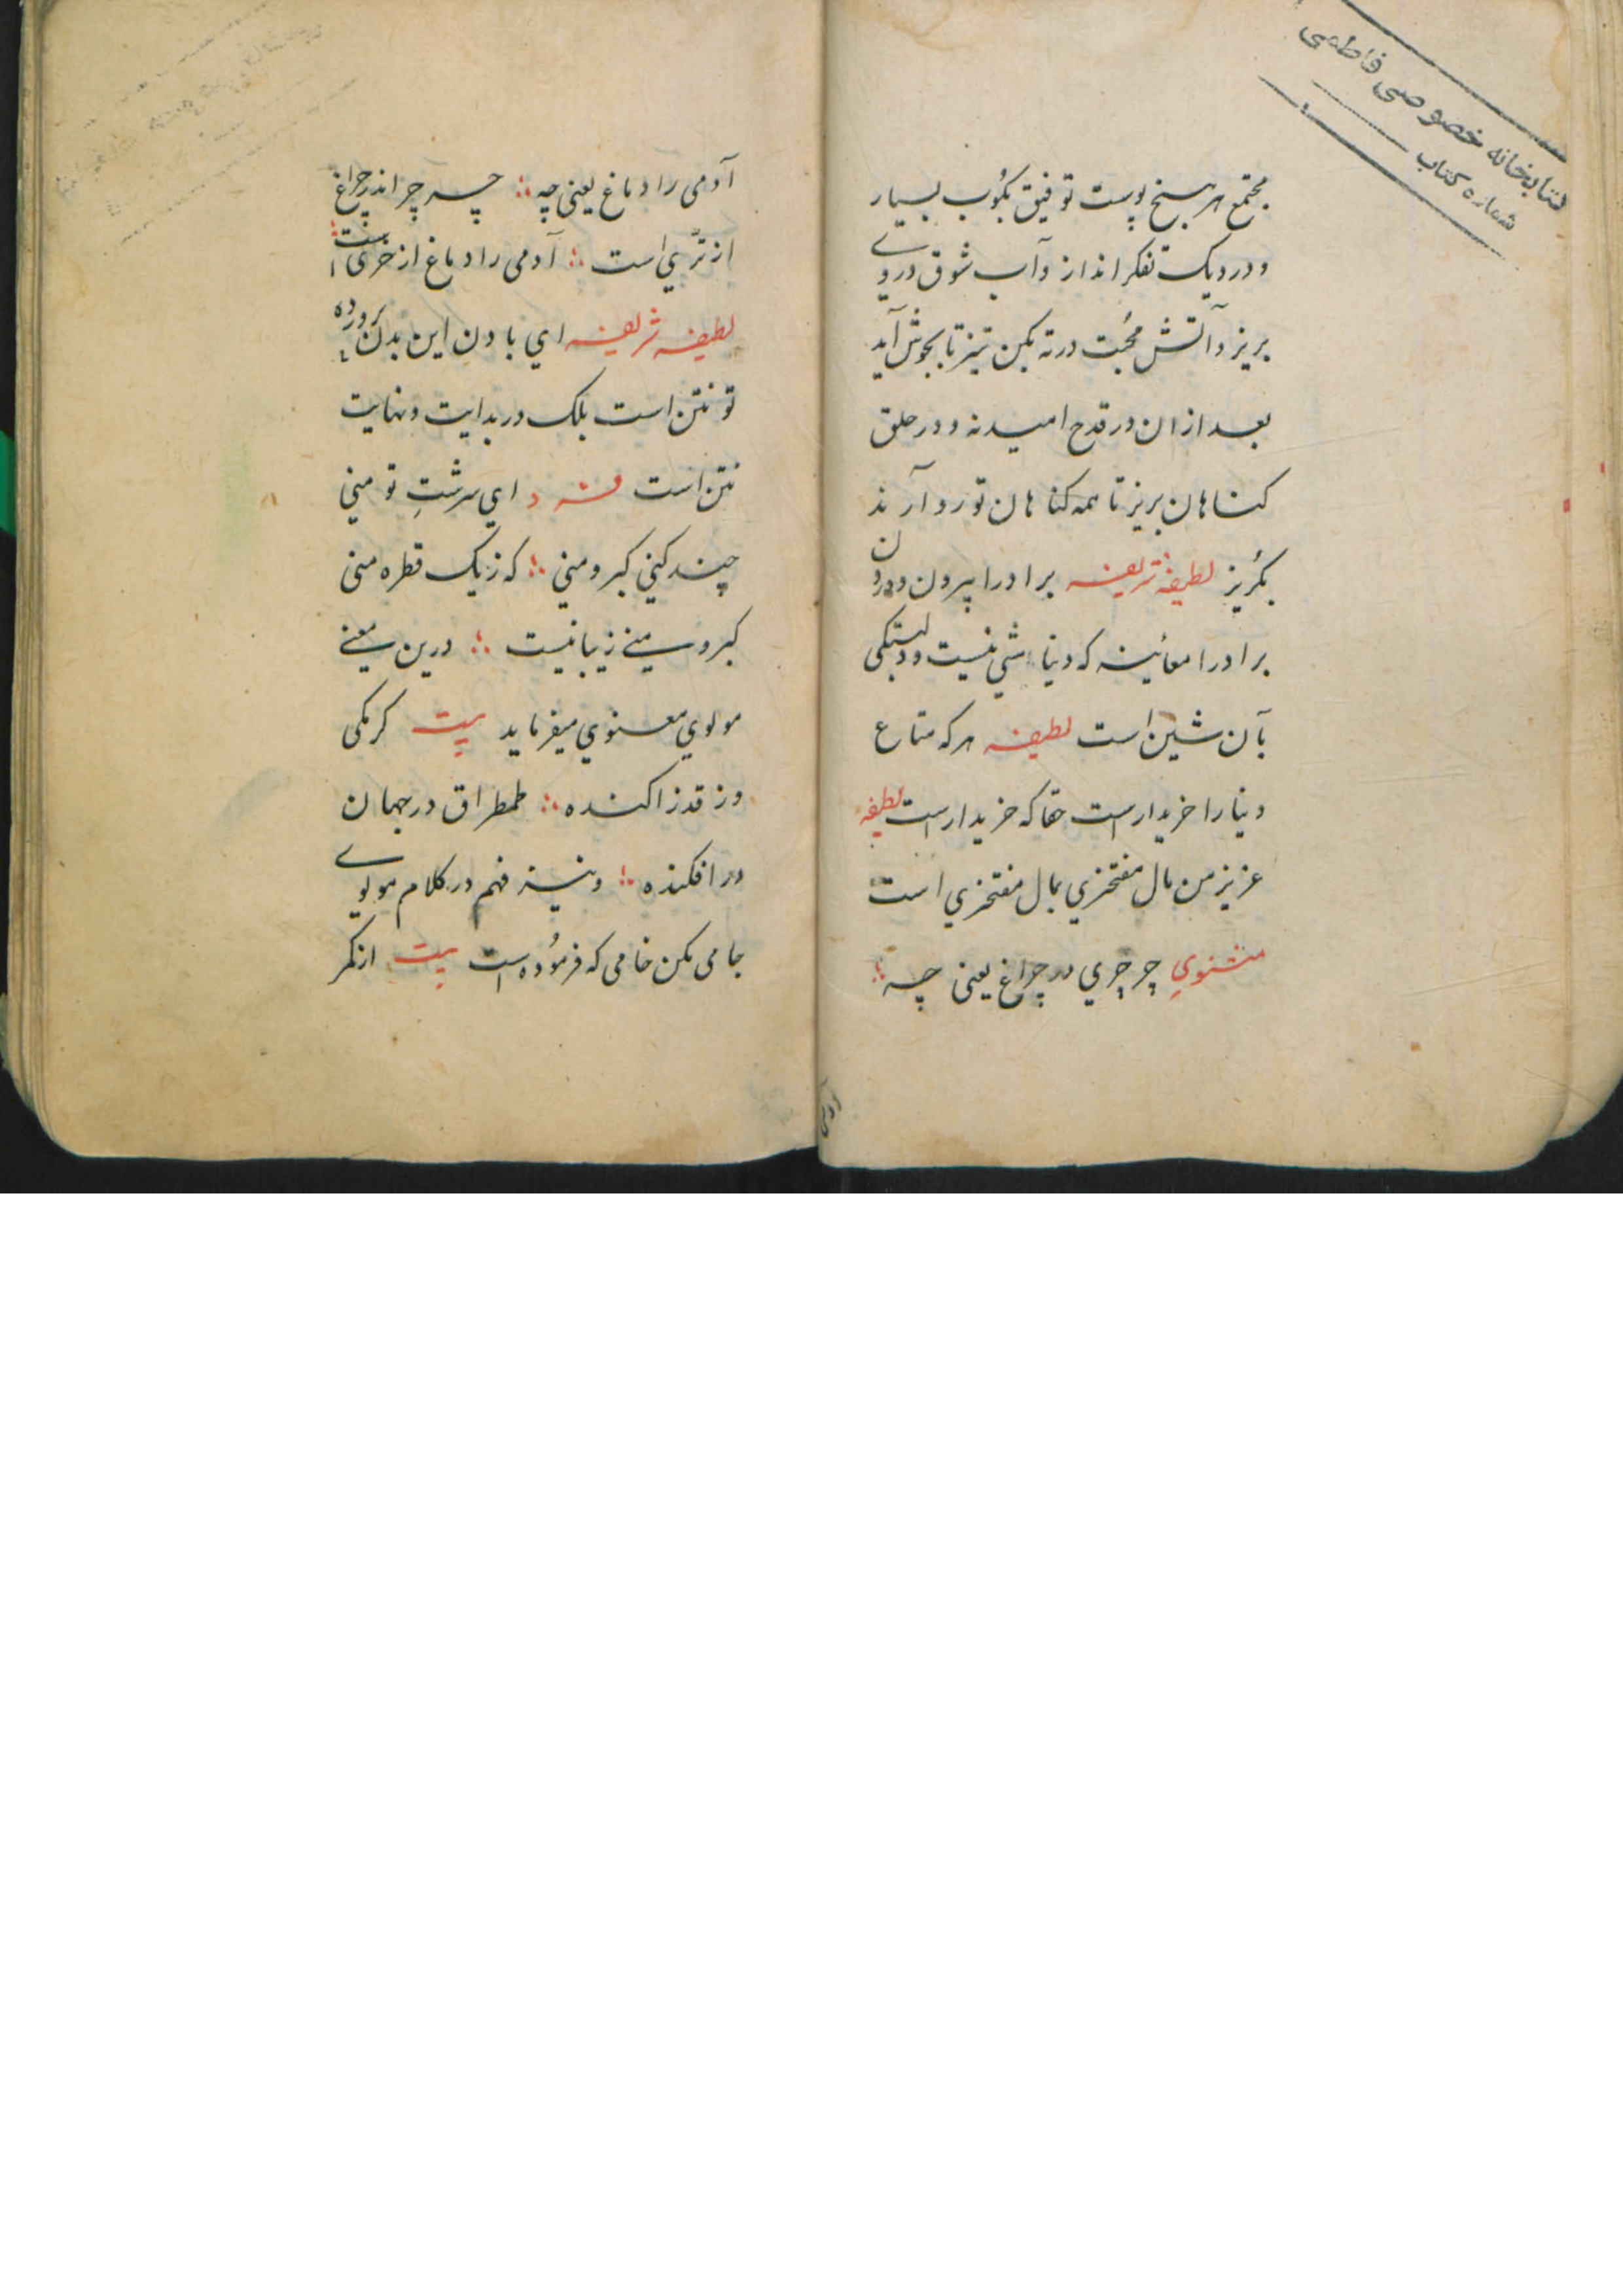 کتابخانه خصوصی فاطمی
شماره کتاب
مجتمع هر سنخ پوست توفیق بکوب بسیار
و در دیک تفکر انداز و آب شوق در وے
بریز و آتش محبت در ته بکن تیز تا بجوش آید
بعد ازان در قدح امید نه و در حلق
کناهان بریز تا همه کناهان تو رو آرند
بکریز لطیفهٔ شریفه برادرا بیرون و درون
برادرا معائینه که دنیا شیٔ نیست و دلبستکی
بآن شین است لطیفه هر که متاع
دنیا را خریدار است حقا که خریدار است لطیفه
عزیز من بال مفتخری بمال مفتخری است
مثنوی چرچری در چراغ یعنی چه
آدمی را دماغ یعنی چه ؞ چه چر اندر چراغ
از تری است ؞ آدمی را دماغ از خری است
لطیفه شریفه ای بادن این بدن پرورده
تو نتن است بلک در بدایت و نهایت
نتن است فرد ای سرشتِ تو منی
چند کنی کبر و منی ؞ که زیک قطره منی
کبر و منے زیبا نیست ؞ درین معنے
مولوی معنوی میفرماید بیت کرمکی
وز قدز اکنده ؞ طمطراق در جهان
در افکنده ؞ و نیز فهم در کلام مولوے
جامی مکن خامی که فرمُوده است بیت ازمکر